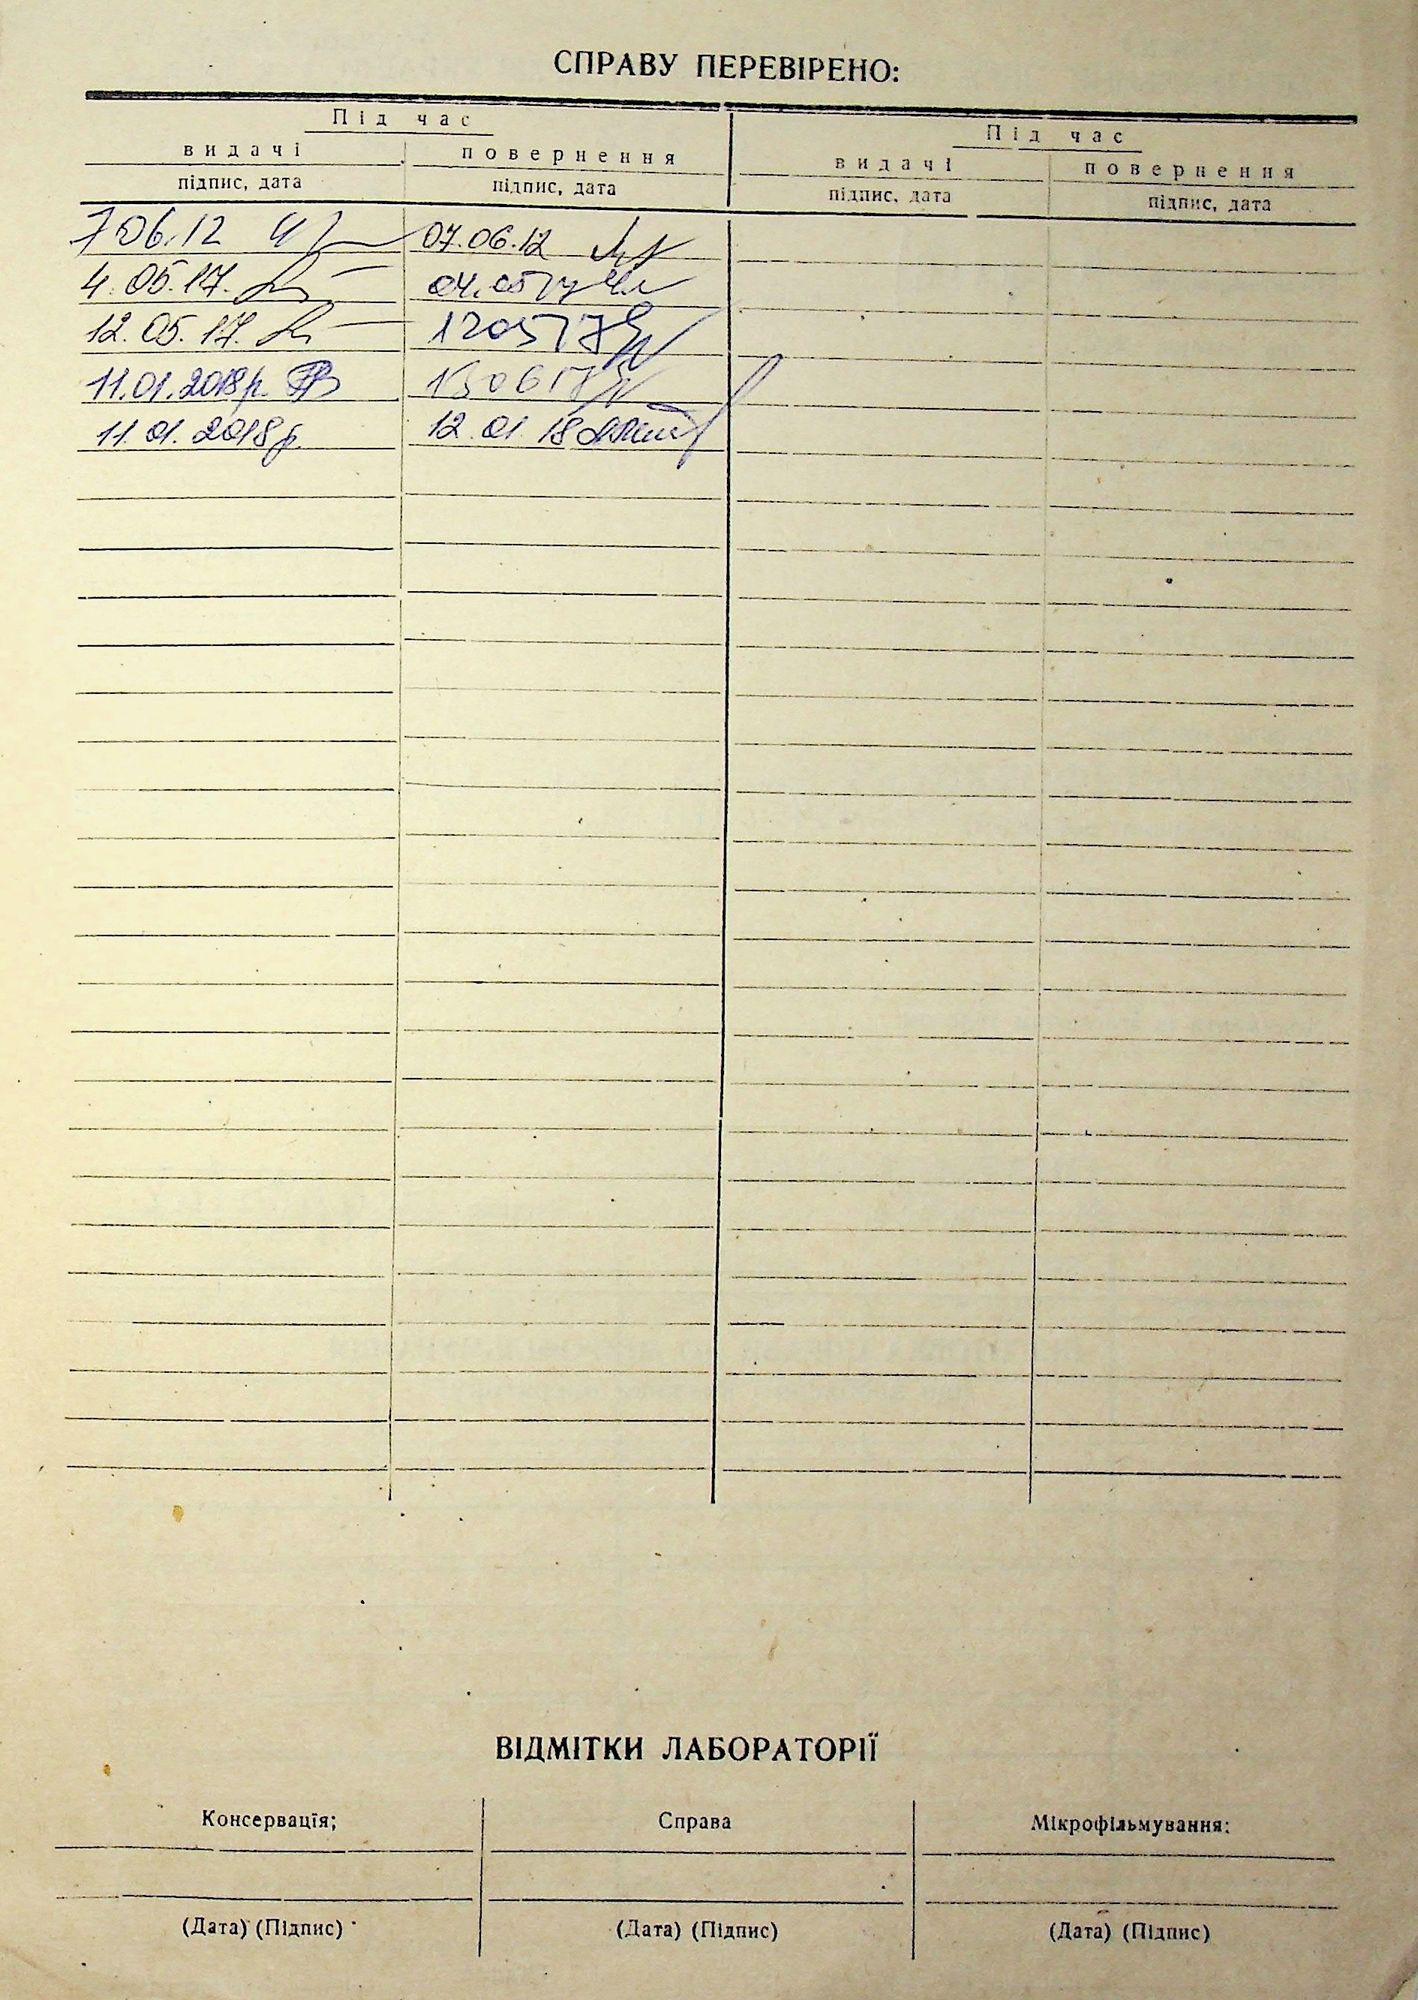 СПРАВУ ПЕРЕВІРЕНО:
Під час Під час
видачі повернення видачі повернення
підпис, дата підпис, дата підпис, дата підпис, дата
7 06.12 07.06.12
4.05.17. 04.05 17
12.05.17. 120517
11.01.2018р. 130617
11.01.2018р. 12.01 18
ВІДМІТКИ ЛАБОРАТОРІЇ
Консервація; Справа Мікрофільмування:
(Дата) (Підпис) (Дата) (Підпис) (Дата) (Підпис)